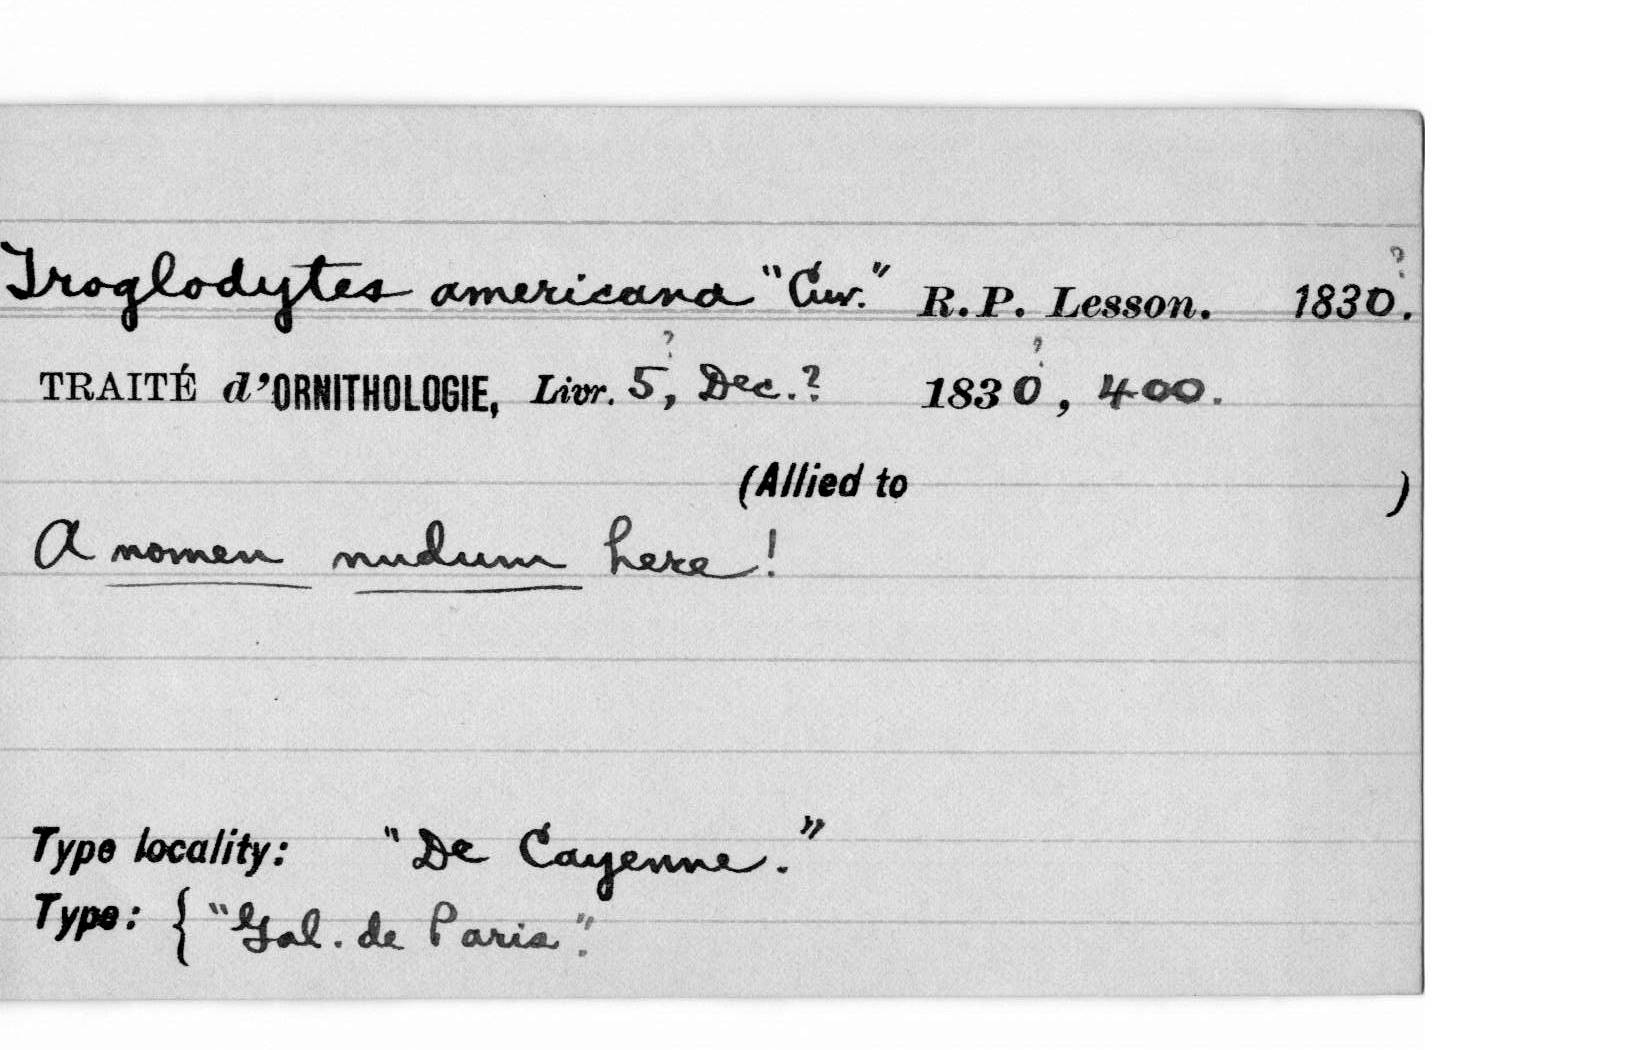 Troglodytes americana "Cuv." R.P. Lesson. 1830?.
TRAITÉ d'ORNITHOLOGIE, Livr. 5?, Dec.? 1830?, 400.
(Allied to )
A nomen nudum here!
Type locality: "De Cayenne."
Type: { "Gal. de Paris".